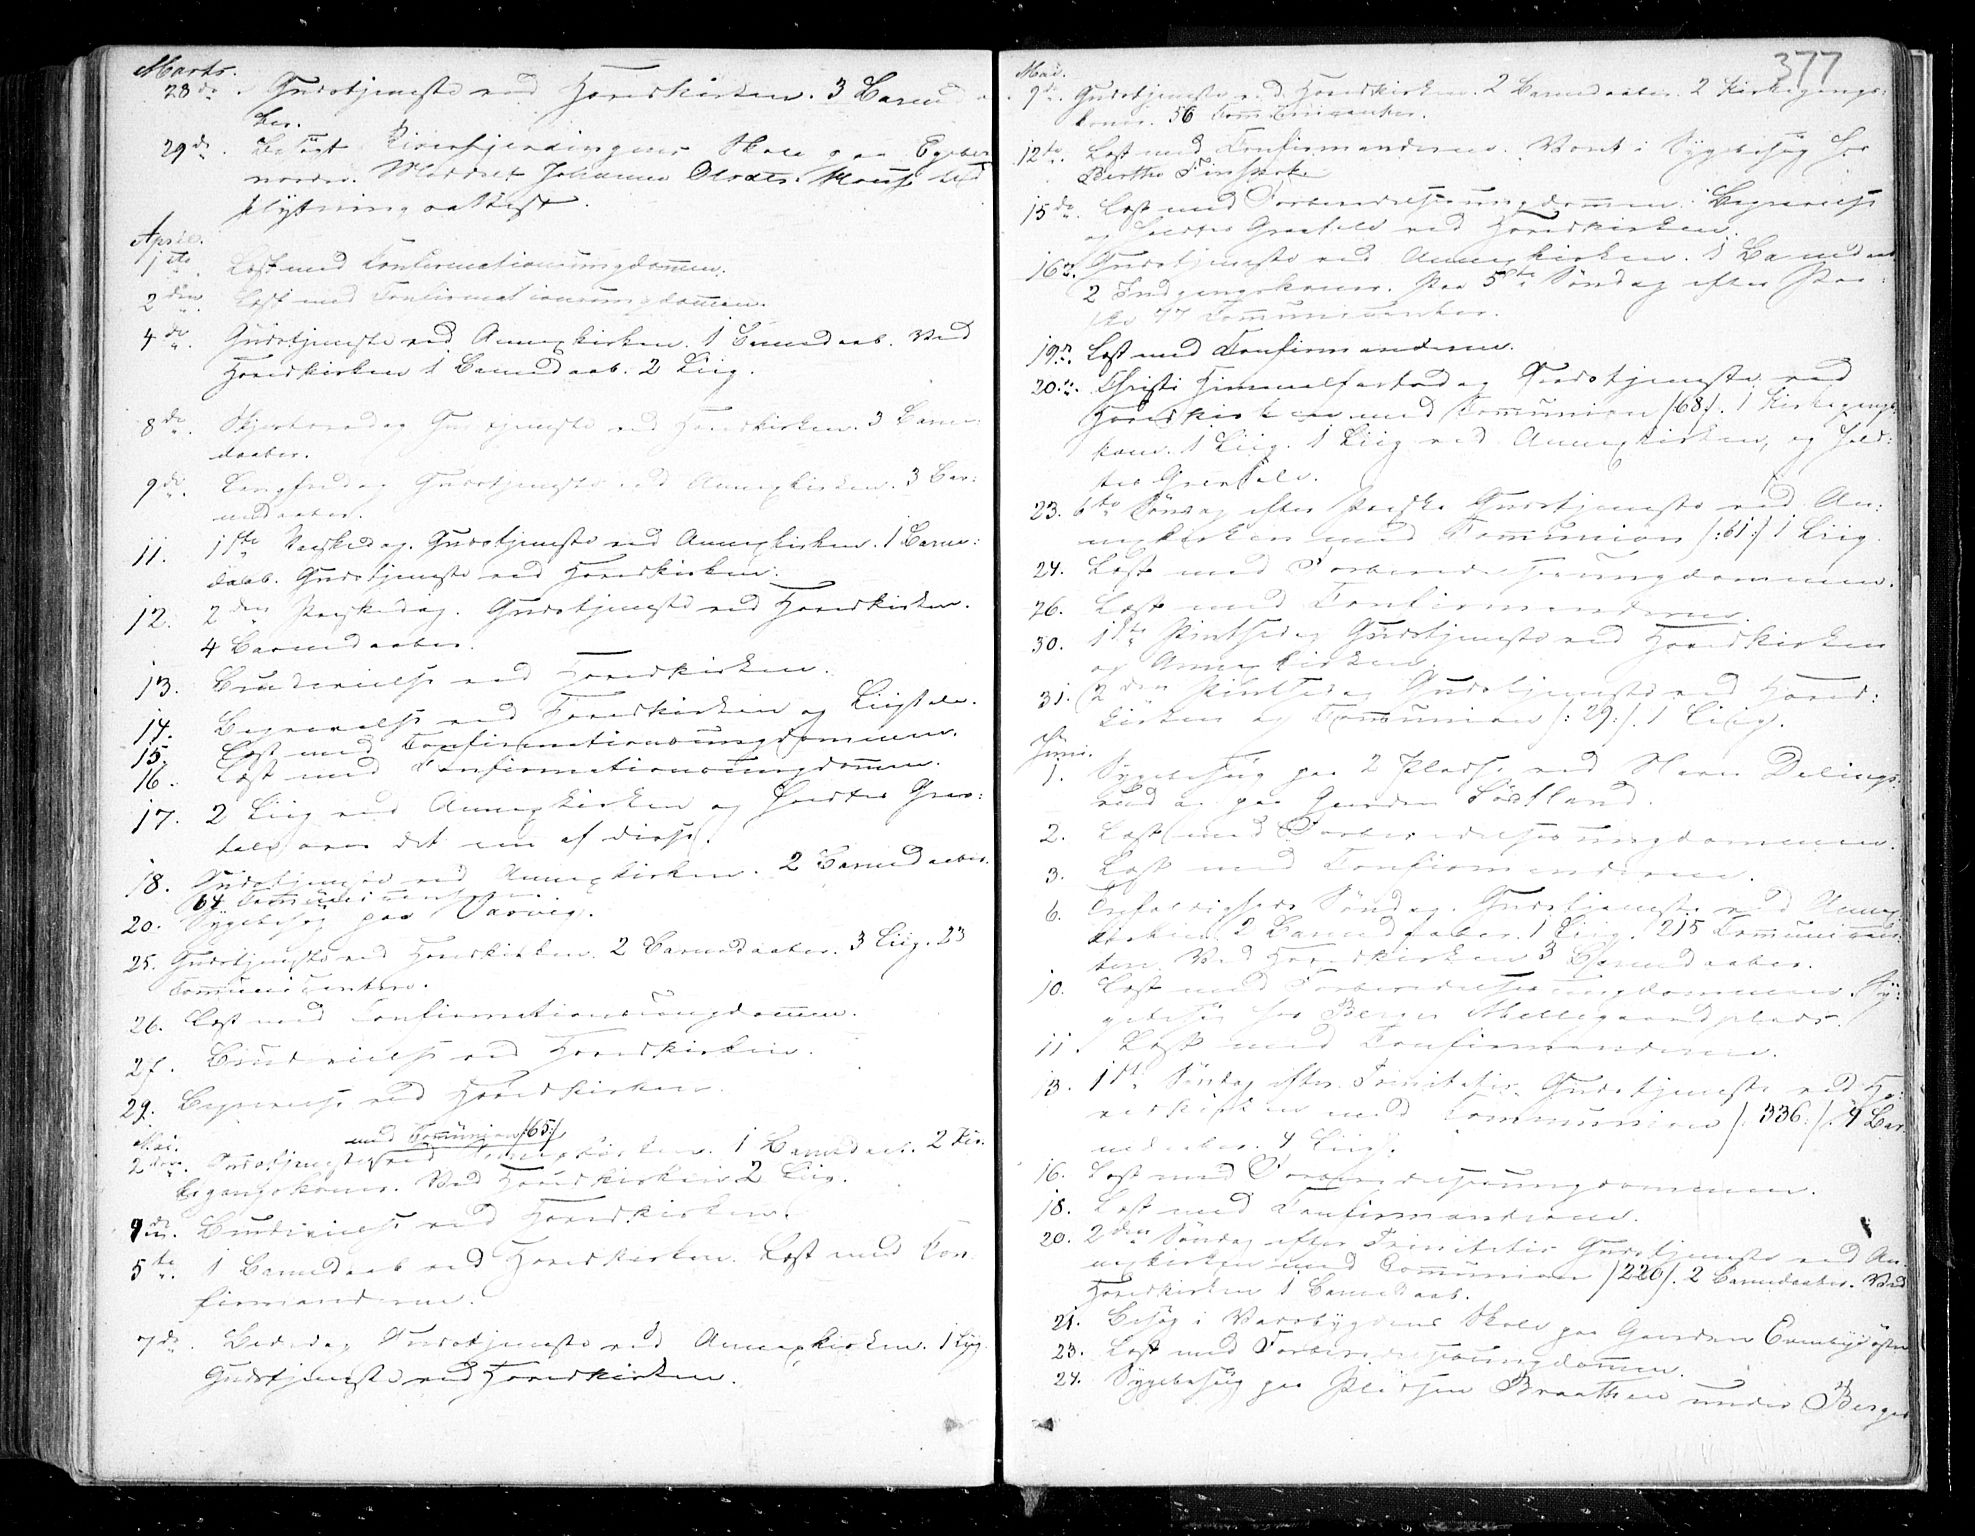 Marts.
28de. Gudstjeneste ved Hovedkirken. 3 Barnedaa
ber.
29de. Besøgt Skole paa
Meddelt Johannes Olsdtr. Mous ud
flytningsattest.
April.
1ste. Læst med Confirmationsungdommen.
2den. Læst med Confirmationsungdommen.
4de. Gudstjeneste ved Annexkirken. 1 Barnedaab. Ved
Hovedkirken 1 Barnedaab. 2 Liig.
8de. Skjærtorsdag Gudstjeneste ved Hovedkirken. 3 Barne-
daaber.
9de. Langfredag Gudstjeneste ved Annexkirken. 3 Bar:
nedaaber.
11. 1ste Paaskedag. Gudstjeneste ved Annexkirken. 1 Barne:
daab. Gudstjeneste ved Hovedkirken.
12. 2den Paaskedag. Gudstjeneste ved Hovedkirken.
4 Barnedaaber.
13. Brudevielse ved Hovedkirken.
14. Begravelse ved Hovedkirken og Liigtale.
15. Læst med Confirmationsungdommen.
16. Læst med Confirmationsungdommen.
17. 2 Liig ved Annexkirken og holdtes Grav:
tale over det ene af disse.
18. Gudstjeneste ved Annexkirken. 2 Barnedaaber.
64 Communicanter.
20. Sygebesøg paa
25. Gudstjeneste ved Hovedkirken. 2 Barnedaaber. 3 Liig. 23
Communicanter.
26. Læst med Confirmationsungdommen.
27. Brudevielse ved Hovedkirken.
29. Begravelse ved Hovedkirken.
Mai.
med Communion /:65:/
2den. Gudstjeneste ved Annexkirken. 1 Barnedaab. 2 Kir:
kegangskoner. Ved Hovedkirken 2 Liig.
Brudevielse ved Hovedkirken.
5te. 1 Barnedaab ved Hovedkirken. Læst med Con
firmanderne.
7de. Bededag Gudstjeneste ved Annexkirken. 1 Liig.
Gudstjeneste ved Hovedkirken.
377
Mai.
9de. Gudstjeneste ved Hovedkirken. 2 Barnedaaber. 2 Kirkegangs:
koner. 56 Communicanter.
12te. Læst med Confirmanderne. Været i Sygebesøg hos
Berthe
15de. Læst med Forberedelsesungdommen. Begravelse
og holdtes Gravtale ved Hovedkirken.
16. Gudstjeneste ved Annexkirken. 1 Barnedaab
2 Indgangskoner. Paa 5te Søndag efter Paa:
ske 77 Communicanter.
19. Læst med Confirmanderne.
20. Christi Himmelfartsdag Gudstjeneste ved
Hovedkirken med Communion /68/. 1 Kirkegangs
kone. 1 Liig. 1 Liig ved Annexkirken, og hold:
tes Gravtale.
23. 6te Søndag efter Paaske Gudstjeneste ved An:
nexkirken med Communion /:61:/ 1 Liig.
24. Læst med Forberedelsesungdommen.
26. Læst med Confirmanderne.
30. 1ste Pintsedag Gudstjeneste ved Hovedkirken
og Annexkirken.
31. 2den Pintsedag Gudstjeneste ved Hoved:
kirken og Communion /:29:/. 1 Liig.
Juni.
1. Sygebesøg paa 2 Pladse ved
og paa Gaarden
2. Læst med Forberedelsesungdommen.
3. Læst med Confirmanderne.
6. Trefoldigheds Søndag. Gudstjeneste ved Annex
kirken 2 Barnedaaber. 1 Liig. 215 Communican:
ter. Ved Hovedkirken 3 Barnedaaber.
10. Læst med Forberedelsesungdommen. Sy:
gebesøg hos Berger
11. Læst med Confirmanderne.
13. 1ste Søndag efter Trinitatis. Gudstjeneste ved Ho:
vedkirken med Communion /:336:/. 4 Bar
nedaaber. 4 Liig.
16. Læst med Forberedelsesungdommen.
18. Læst med Confirmanderne.
20. 2den Søndag efter Trinitatis Gudstjeneste ved An:
nexkirken med Communion /226/. 2 Barnedaaber. Ved
Hovedkirken 1 Barnedaab.
21. Besøg i Skole paa Gaarden Evenbyøstre
23. Læst med Forberedelsesungdommen.
24. Sygebesøg paa Pladsen Braathen under Berger